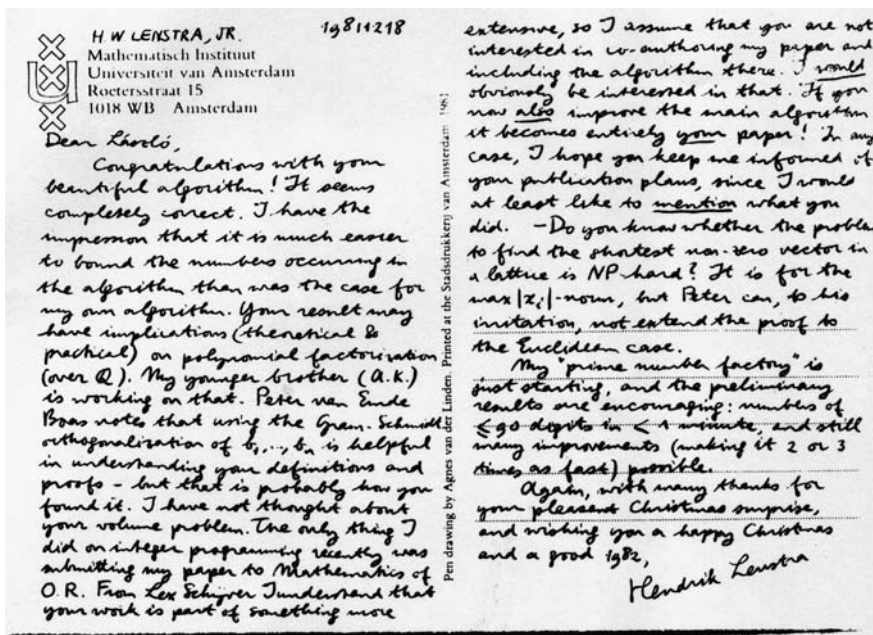 H. W. LENSTRA, JR.
19811218
Mathematisch Instituut
Universiteit van Amsterdam
Roetersstraat 15
1018 WB Amsterdam
Dear László,
Congratulations with your
beautiful algorithm! It seems
completely correct. I have the
impression that it is much easier
to bound the numbers occurring in
the algorithm than was the case for
my own algorithm. Your result may
have implications (theoretical &
practical) on polynomial factorization
(over Q). My younger brother (A.K.)
is working on that. Peter van Emde
Boas notes that using the Gram-Schmidt
orthogonalization of b₁,..., bₙ is helpful
in understanding your definitions and
proofs – but that is probably how you
found it. I have not thought about
your volume problem. The only thing I
did on integer programming recently was
submitting my paper to Mathematics of
O.R. From Lex Schijver I understand that
your work is part of something more
Pen drawing by Agnes van der Linden. Printed at the Stadsdrukkerij van Amsterdam 1981
extensive, so I assume that you are not
interested in co-authoring my paper and
including the algorithm there. I would
obviously be interested in that. If you
now also improve the main algorithm
it becomes entirely your paper! In any
case, I hope you keep me informed of
your publication plans, since I would
at least like to mention what you
did. – Do you know whether the problem
to find the shortest non-zero vector in
a lattice is NP-hard? It is for the
max |xᵢ|-norm, but Peter can, to his
irritation, not extend the proof to
the Euclidean case.
My "prime number factory" is
just starting, and the preliminary
results are encouraging: numbers of
≤ 90 digits in < 1 minute, and still
many improvements (making it 2 or 3
times as fast) possible.
Again, with many thanks for
your pleasant Christmas surprise,
and wishing you a happy Christmas
and a good 1982,
Hendrik Lenstra